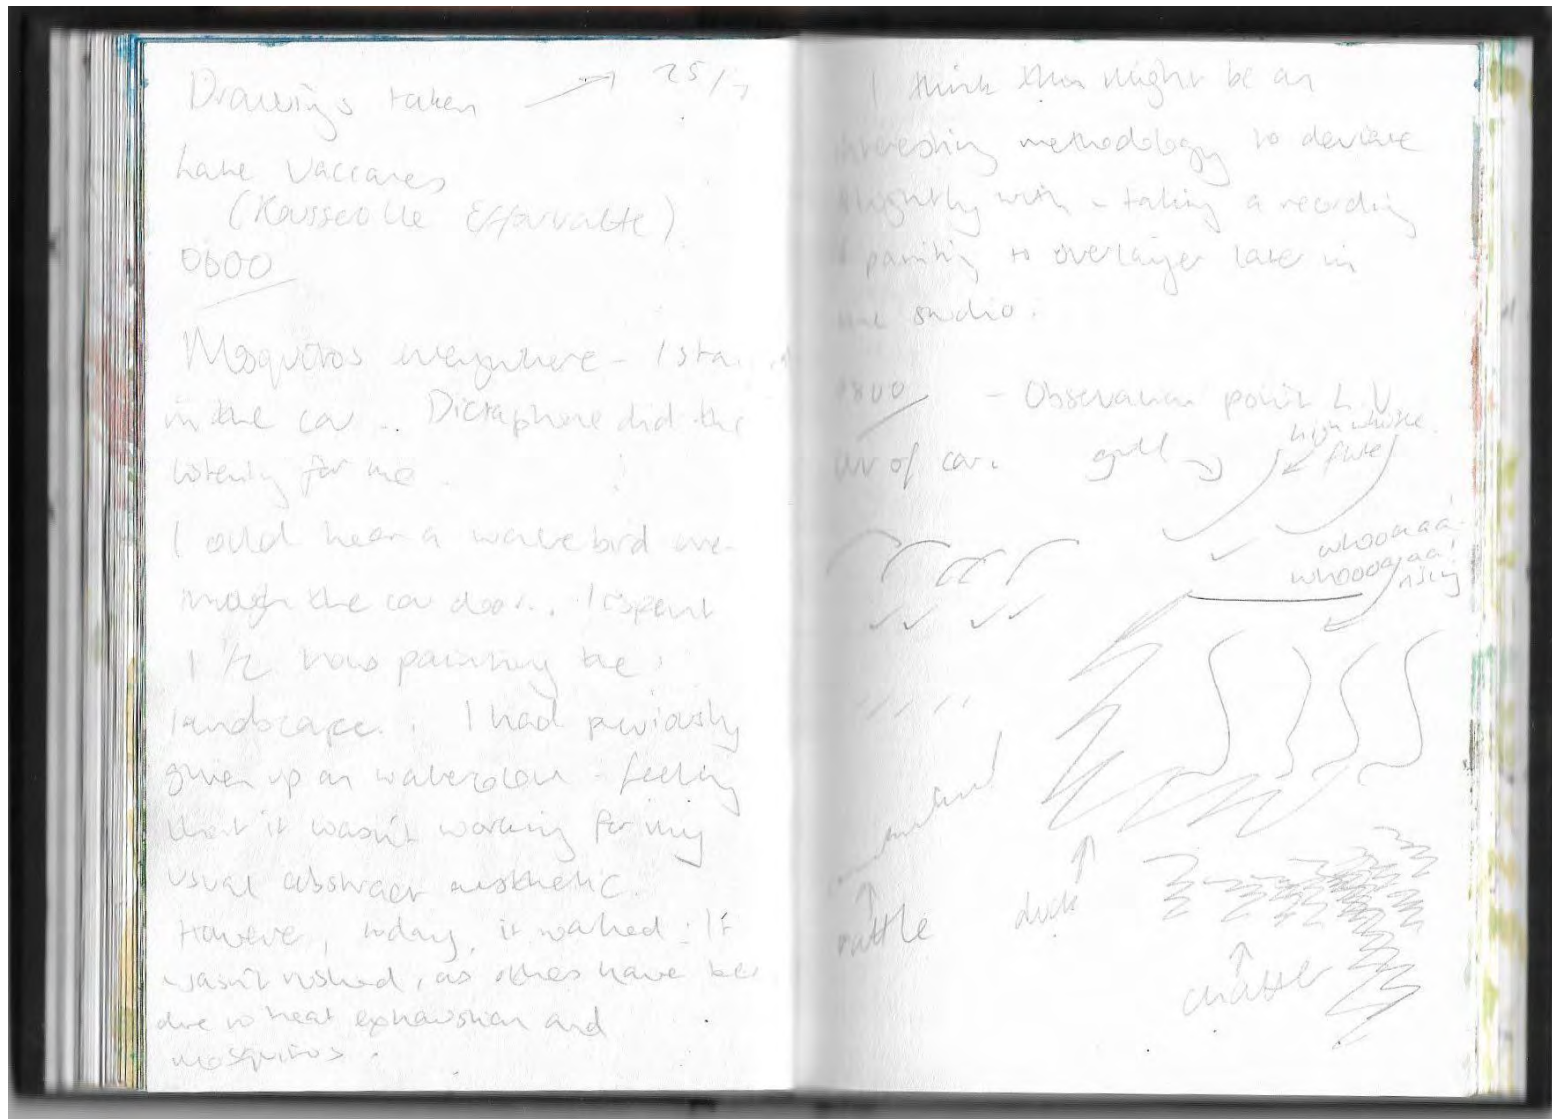 Drawings taken → 25/7
Lake Vaccares
(Rousserolle Effarvatte)
0600
Mosquitos everywhere - I sta
in the car .. Dictaphone did the
listening for me.
I could hear a water bird
through the car door.. I spent
1 1/2 hours painting the
landscape.. I had previously
given up on watercolour - feeling
that it wasn't working for my
usual abstract aesthetic.
However, today, it worked. It
wasn't rushed, as others have been
due to heat exhaustion and
mosquitos.
I think this might be an
interesting methodology to deviate
slightly with - taking a recording
& painting to overlayer later in
the studio.
0800 - Observation point L.V.
out of car. gull
high whistle.
flute
whoooaaa!
whoooaaa!
rising
and
and
rattle
duck
chatter